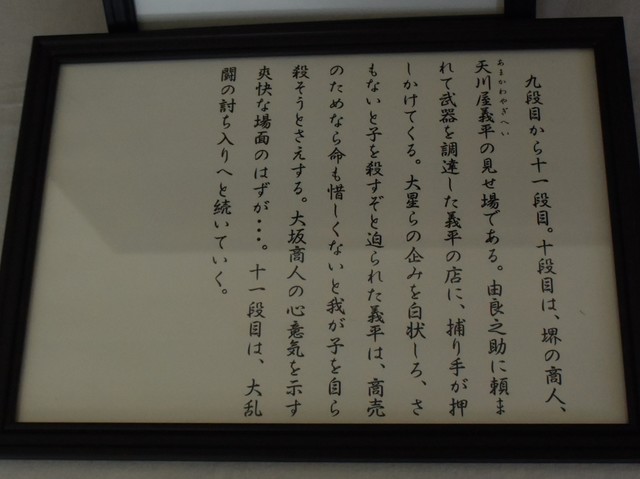 九段目から十一段目。十段目は、堺の商人、
あまかわやぎへい
天川屋義平の見せ場である。由良之助に頼ま
れて武器を調達した義平の店に、捕り手が押
しかけてくる。大星らの企みを白状しろ、さ
もないと子を殺すぞと迫られた義平は、商売
のためなら命も惜しくないと我が子を自ら
殺そうとさえする。大坂商人の心意気を示す
爽快な場面のはずが・・・。十一段目は、大乱
闘の討ち入りへと続いていく。